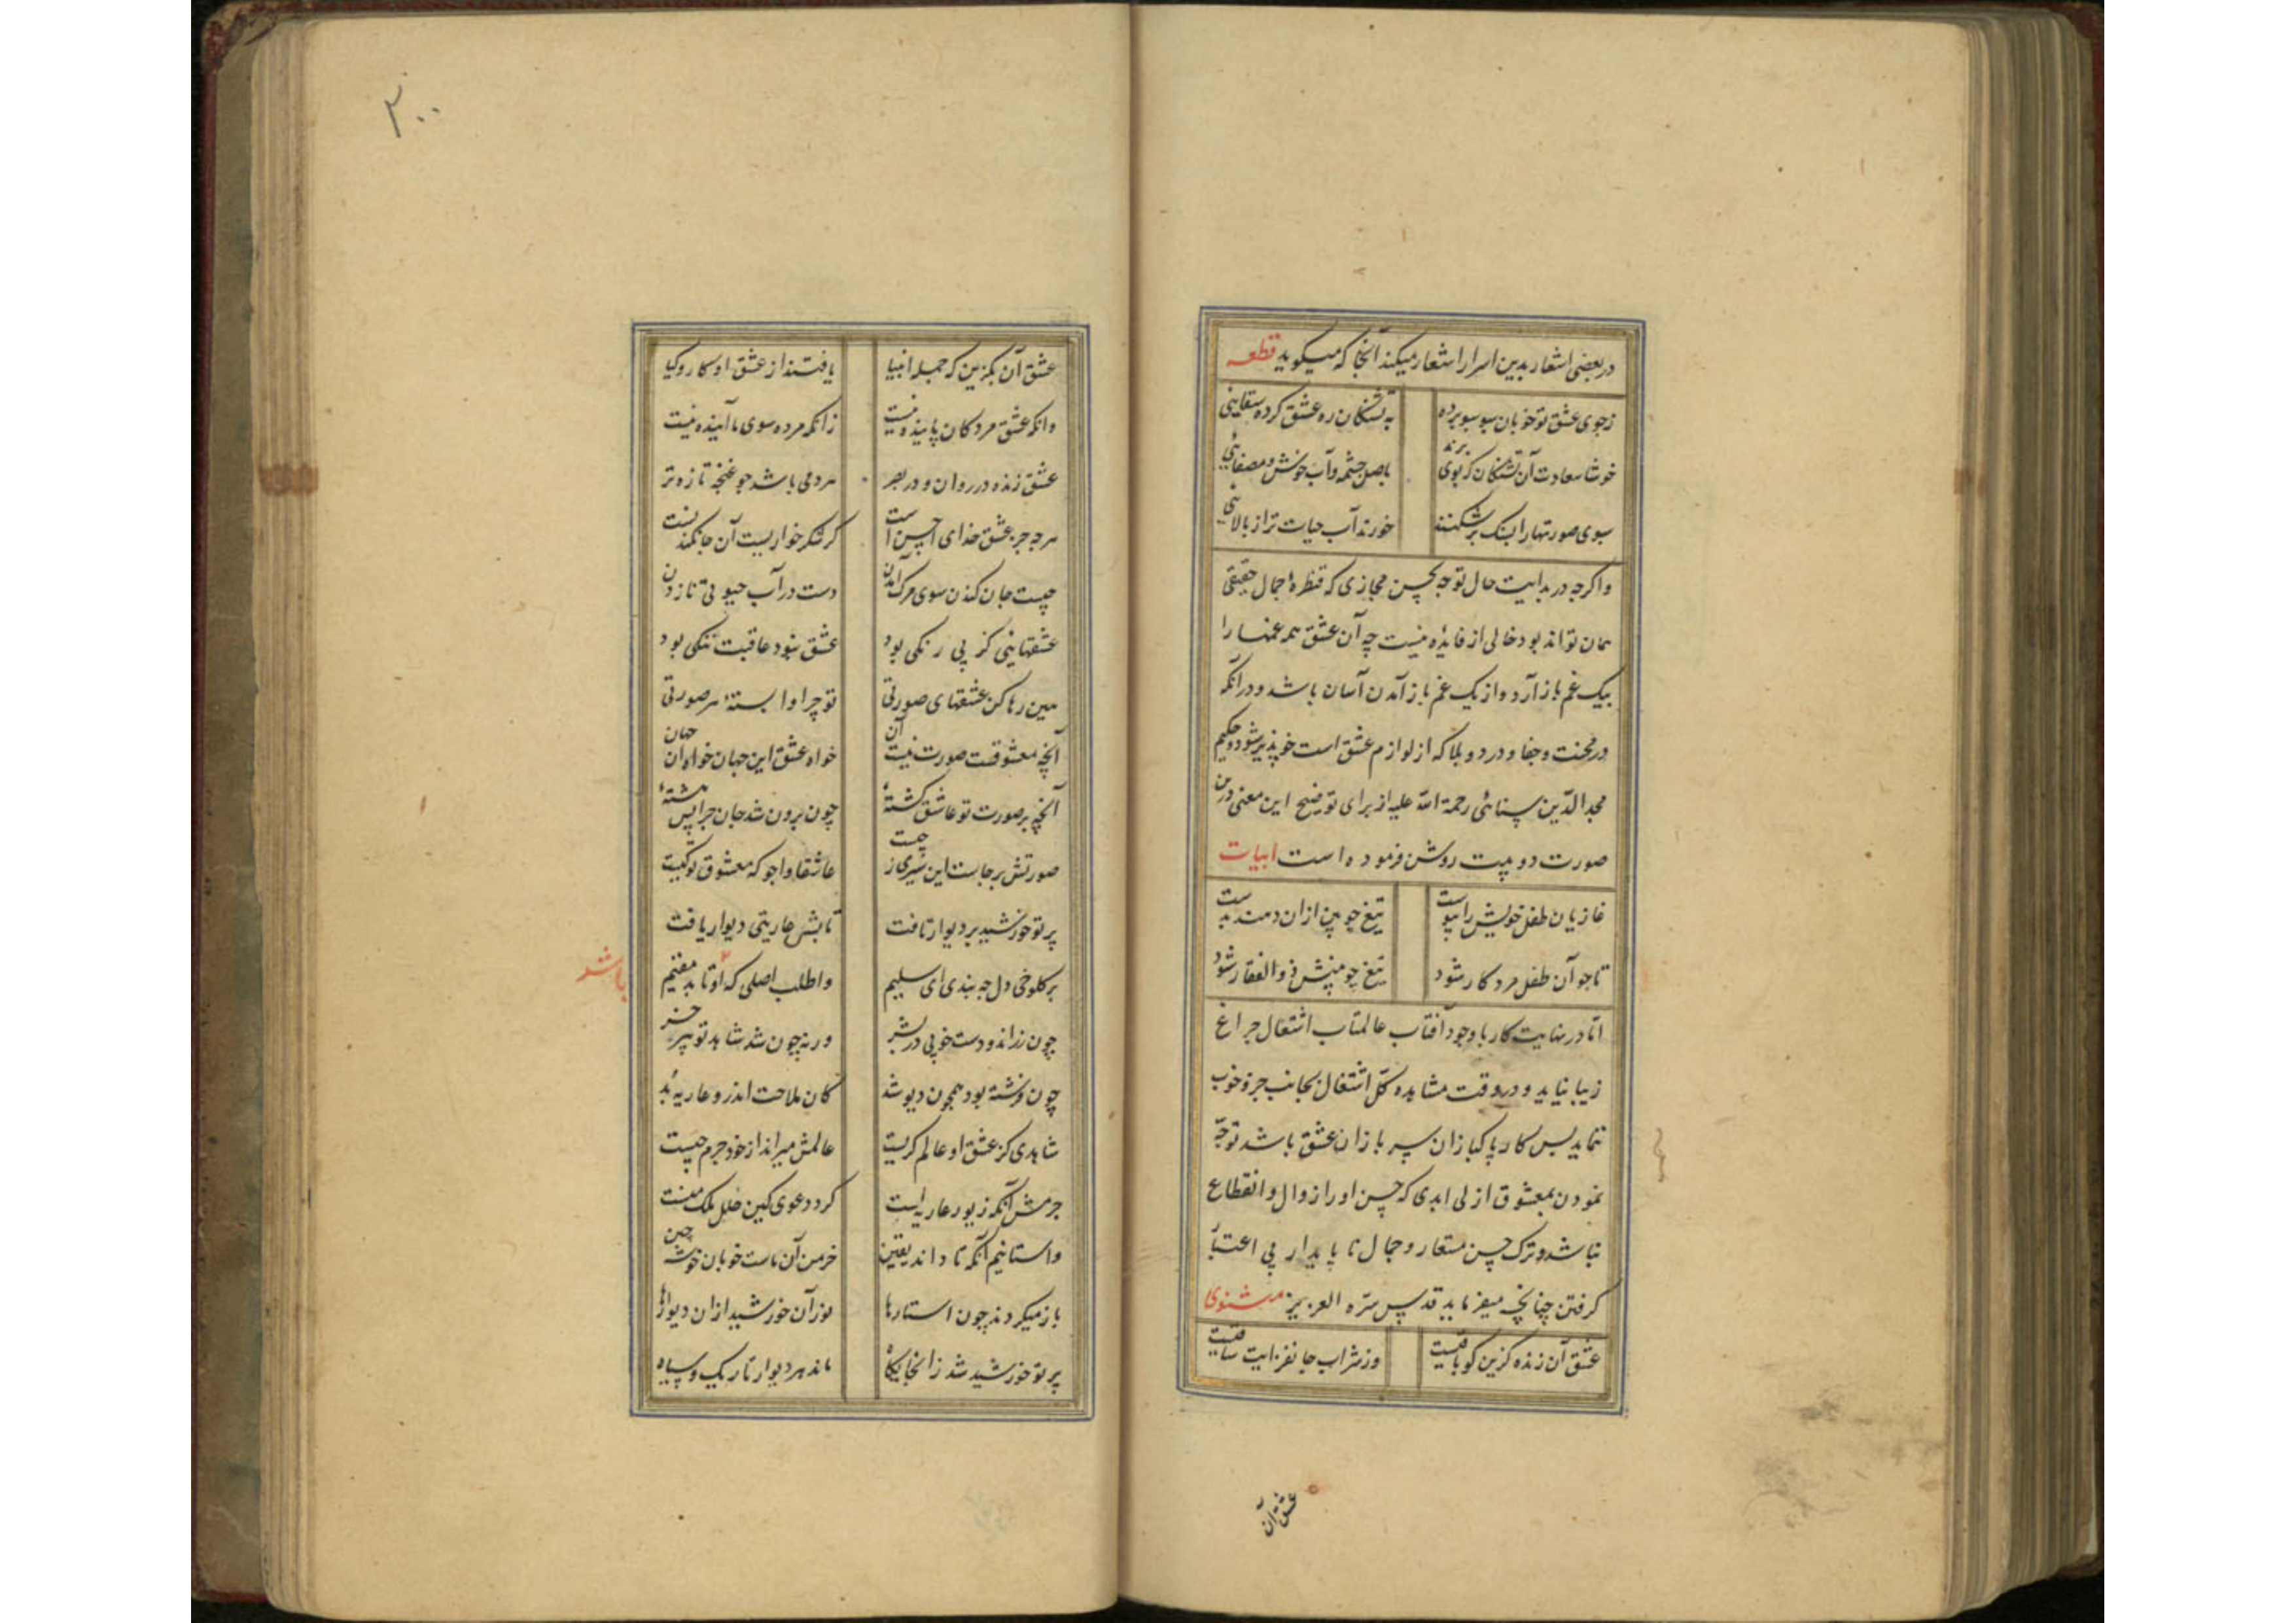 در بعضی اشعار بدین اسرار اشعار میکند آنجا که میکوید قطعه
زجوی عشق تو خوبان سبو سبو برده به تشنکان ره عشق کرده سقایی
خوشا سعادت آن تشنکان که بوی برند باصل چشمه و آب خوش و مصفایی
سوی صورتها را بسنک برشکنند خورند آب حیات تر از بالایی
واکرچه در بدایت حال توجه بحسن مجازی که قنطرهٔ جمال حقیقی
همان تواند بود خالی از فایده نیست چه آن عشق همه غمها را
بیک غم باز آرد و از یک غم باز آمدن آسان باشد و در آنکه
در محنت و جفا و درد و بلا که از لوازم عشق است خوپذیر شود و حکیم
مجد الدین سنائی رحمة الله علیه از برای توضیح این معنی درین
صورت دو بیت روشن فرموده است ابیات
غازیان طفل خویش را پیوست تیغ چوبین ازان دهند بدست
تا چو آن طفل مرد کار شود تیغ چوبینش ذو الفقار شود
اما در نهایت کار با وجود آفتاب عالمتاب اشتعال چراغ
زیبا نیاید و در وقت مشاهده کل اشتغال بجانب جزو خوب
ننماید پس کار پاکبازان سربازان عشق باشد توجه
نمودن بمعشوق ازلی ابدی که حسن او را زوال و انقطاع
نباشد و ترک حسن مستعار و جمال ناپایدار بی اعتبار
کرفتن چنانچه میفرماید قدس سره العزیز مثنوی
عشق آن زنده کزین کو باقیست وز شراب جانفزایت ساقیست
عشق آن
۳۰۰
عشق آن بکزین که جمله انبیا یافتند از عشق او کار و کیا
وانکه عشق مردکان پاینده نیست زانکه مرده سوی ما آینده نیست
عشق زنده در روان و در بصر هر دمی باشد چو غنچه تازه تر
هرچه جز عشق خدای احسن است کر شکر خواریست آن جان کندنست
چیست جان کندن سوی مرک آمدن دست در آب حیوتی نازدن
عشقهایی کز پی رنکی بود عشق نبود عاقبت ننکی بود
هین رها کن عشقهای صورتی تو چرا وابستهٔ هر صورتی
آنچه معشوقست صورت نیست آن خواه عشق این جهان خواه آن جهان
آنچه بر صورت تو عاشق کشتهٔ چون برون شد جان چرایش هشتهٔ
صورتش برجاست این سیری ز چیست عاشقا واجو که معشوق تو کیست
پرتو خورشید بر دیوار تافت تابش عاریتی دیوار یافت
بر کلوخی دل چه بندی ای سلیم واطلب اصلی که او تابد مقیم
باشد
چون زراندودست خوبی در بشر ورنه چون شد شاهد تو پیر خر
چون فرشته بود همچون دیو شد کان ملاحت اندرو عاریه بد
شاهدی کز عشق او عالم کریست عالمش میراند از خود جرم چیست
جرمش آنکه زیور عاریه است کرد دعوی کین حلل ملک منست
واستانیم آنکه تا داند یقین خرمن آن ماست خوبان خوشه چین
باز میکردند چون استارها نور آن خورشید ازان دیوارها
پرتو خورشید شد زانجایکاه ماند هر دیوار تاریک و سیاه